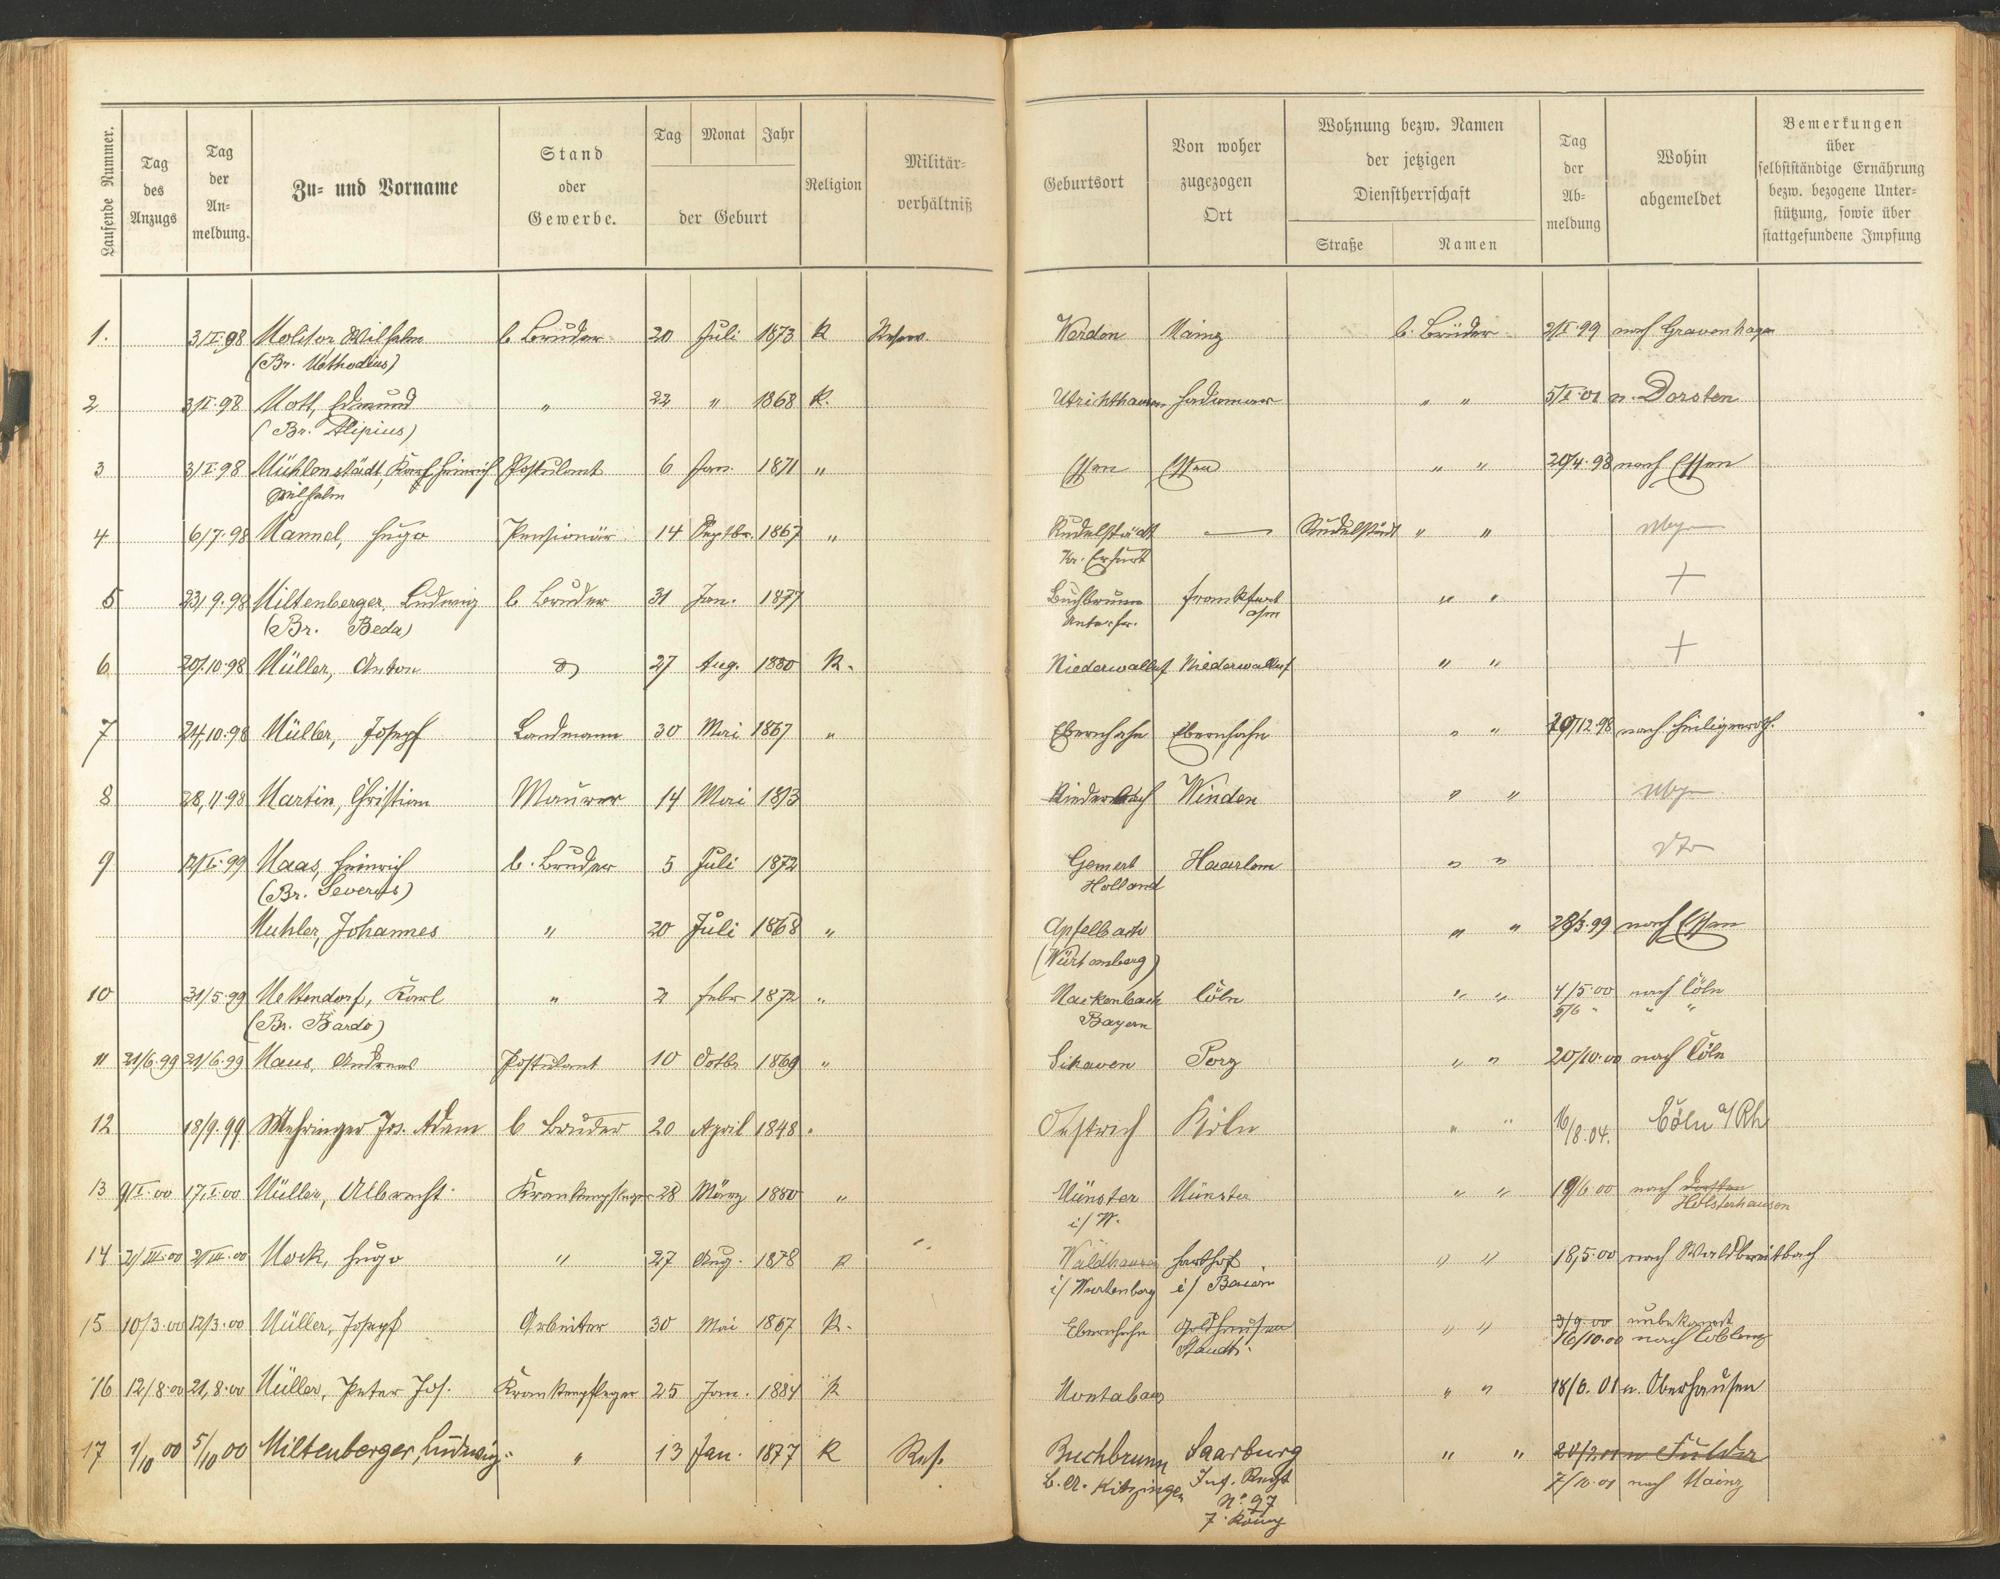 Laufende Nummer.
Tag des Anzugs
Tag der An- meldung.
Zu- und Vorname
Stand oder Gewerbe.
Tag Monat Jahr
der Geburt
Religion
Militär- verhältniß
Geburtsort
Von woher zugezogen Ort
Wohnung bezw. Namen der jetzigen Dienstherrschaft
Straße Namen
Tag der Ab- meldung
Wohin abgemeldet
Bemerkungen über selbstständige Ernährung bezw. bezogene Unter- stützung, sowie über stattgefundene Impfung
1. 3/I.98 Molitor Wilhelm b. Bruder 20 Juli 1873 K Reserv. Werden Mainz b. Brüder nach Gravenhagen
(Br. Methodius)
2 3/I.98 Edmund " 22 " 1868 K. Hadamar " " n. Dorsten
(Br. Alipius)
3 3/I.98 Mühlenstädt, Karl Heinrich Postulant 6 Jan. 1871 " Essen Essen " " 20/4.98 nach Essen
Wilhelm
4 6/7.98 Mannel, Hugo Pensionär 14 Septbr. 1867 " Rudelstädt — Rudelstädt " "
Kr. Erfurt
5 23/9.98 Miltenberger, Ludwig b. Bruder 31 Jan. 1877 Buchbrunn Frankfurt " " +
(Br. Beda) Unterfr. a/m
6 20/10.98 Müller, Anton 27 Aug. 1880 K. Niederwalluf Niederwalluf " " +
7 24/10.98 Müller, Josef Landmann 30 Mai 1867 " Ebernhahn Ebernhahn " " 29/12.98 nach Heiligenroth.
8 28/11.98 Martin, Christian Maurer 14 Mai 1873 Winden " "
9 12/I.99 Maas, Heinrich b. Bruder 5 Juli 1872 Gemert Haarlem " "
(Br. Severus) Holland
Muhler, Johannes " 20 Juli 1868 " Apfelbach " " 28/3.99 nach Essen
(Würtemberg)
10 31/5.99 Mettendorf, Karl " 2 Febr 1872 " Mackenbach Cöln " " 4/5.00 nach Cöln
(Br. Bardo) Bayern 5/6 " " "
11 21/6.99 21/6.99 Maus, Andreas Postulant 10 Octbr 1869 " Porz " " 20/10.00 nach Cöln
12 18/9.99 Mehringer Jos. Adam b Bruder 20 April 1848 " Oestrich Köln " " 16/8.04. Cöln a/Rh
13 9/I.00 17/I.00 Müller, Albrecht Krankenpfleger 28 März 1880 " Münster Münster " " 19/6.00 nach Dorsten
i/W. Holsterhausen
14 2/III.00 2/III.00 Mock, Hugo " 27 Aug. 1878 K Waldhausen " " 18/5.00 nach Waldbreitbach
i/ Wurtenberg i/ Baiern
15 10/3.00 12/3.00 Müller, Josef Arbeiter 30 Mai 1867 K. Ebernhahn Goldhausen " " 3/9.00 unbekannt
Staudt. 16/10.00 nach Coblenz
16 12/8.00 21/8.00 Müller, Peter Jos. Krankenpfleger 25 Jan. 1884 K Montabaur " " 18/6.01 n. Oberhausen
17 1/10 00 5/10 00 Miltenberger, Ludwig " 13 Jan. 1877 K Res. Buchbrunn Saarburg " " 20/2.01 n Fulda
b. A. Kitzingen Inf. Regt 7/10.01 nach Mainz
No 97
7. König